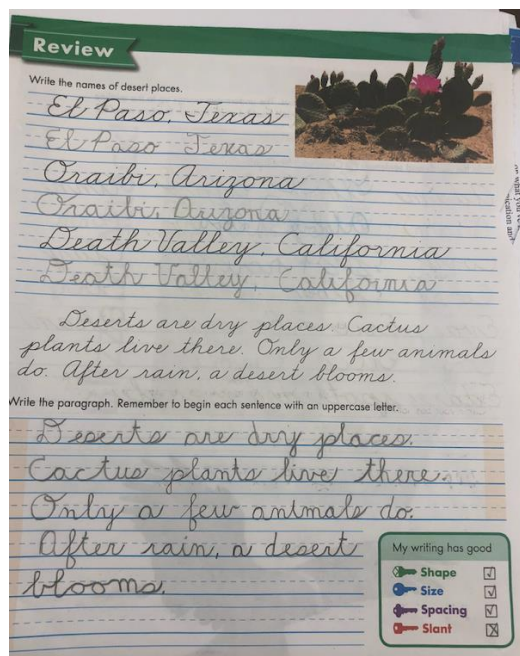 Review
Write the names of desert places.
El Paso, Texas
El Paso Texas
Oraibi, Arizona
Oraibi, Arizona
Death Valley, California
Death Valley, California
Deserts are dry places. Cactus
plants live there. Only a few animals
do. After rain, a desert blooms.
Write the paragraph. Remember to begin each sentence with an uppercase letter.
Deserts are dry places.
Cactus plants live there.
Only a few animals do.
After rain, a desert
blooms.
My writing has good
Shape
Size
Spacing
Slant